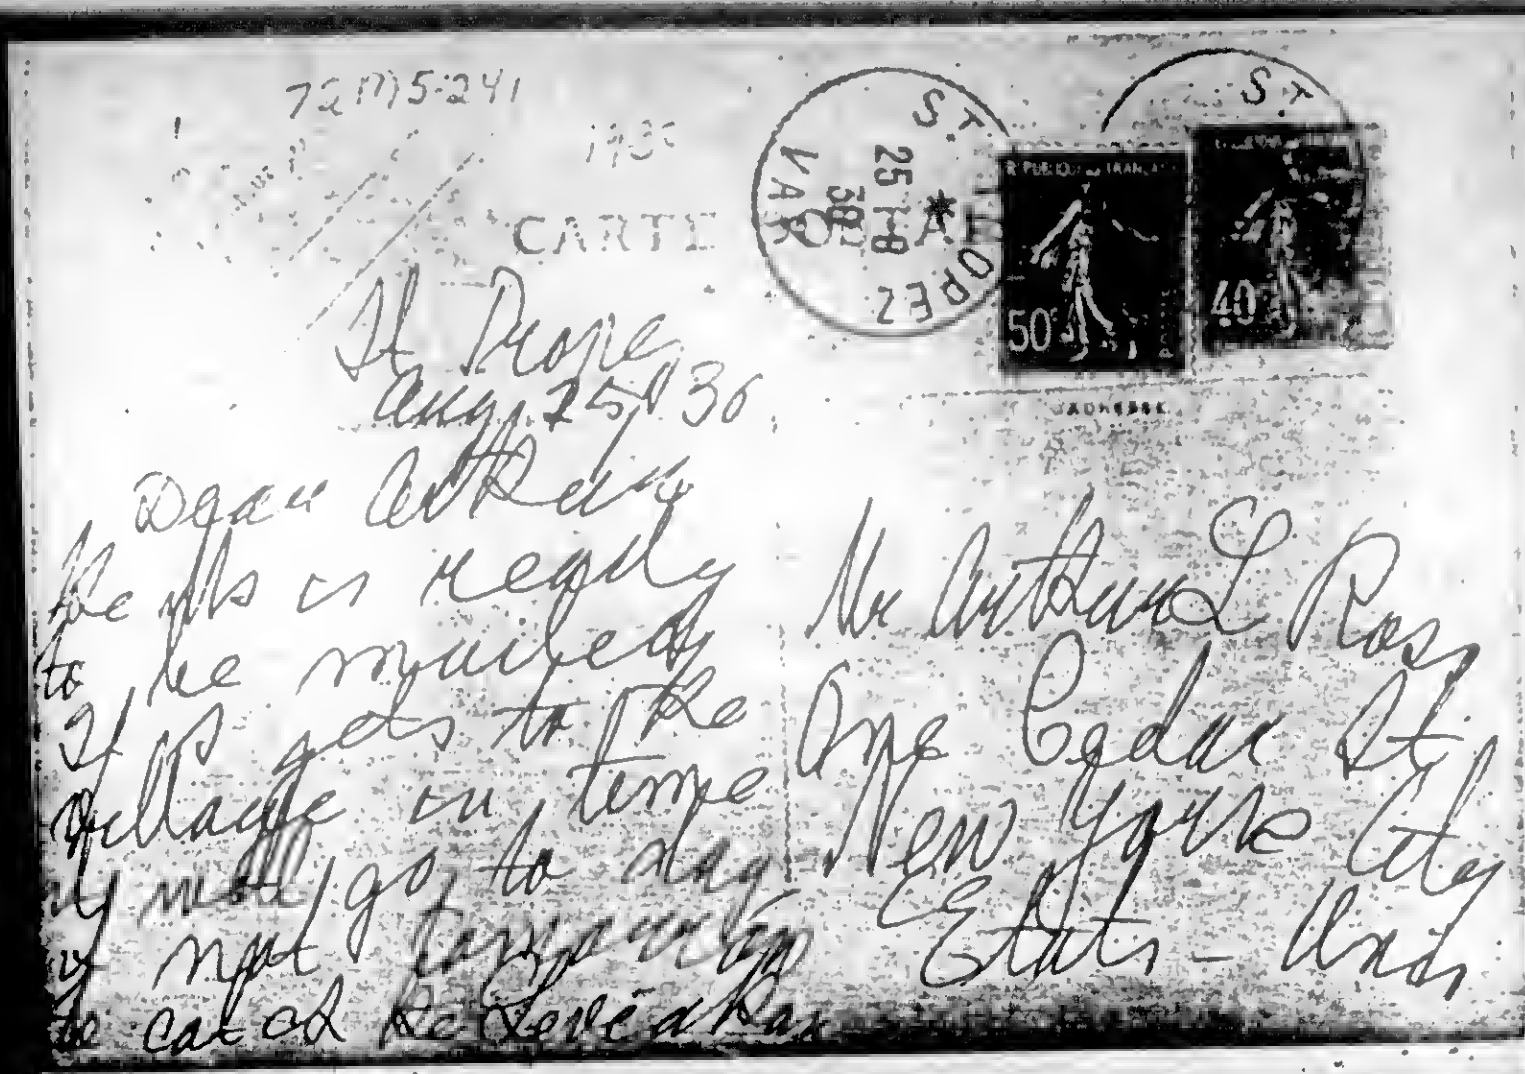 72M5-241
1930
CARTE
ST TROPEZ
VAR
25 -8
30
REPUBLIQUE FRANÇAISE
50c
40c
ADRESSE
St Trope
Aug. 25/30
Dear Arthur
the Ms is ready
to be mailed
If it gets to the
village in time
it will go to day
if not tomorrow
to catch the Leviathan
Mr Arthur L Ross
One Cedar St
New York City
Etats-Unis